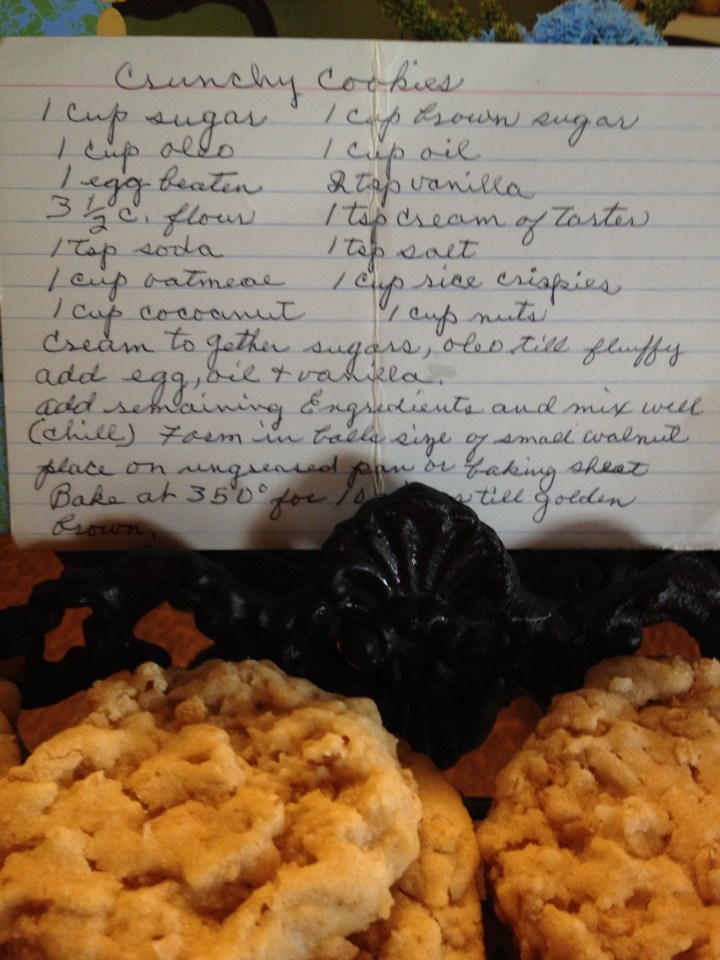 Crunchy Cookies
1 cup sugar 1 cup brown sugar
1 cup oleo 1 cup oil
1 egg beaten 2 tsp vanilla
3 1/2 c. flour 1 tsp cream of Tarter
1 tsp soda 1 tsp salt
1 cup oatmeal 1 cup rice crispies
1 cup cocoanut 1 cup nuts
Cream to gether sugars, oleo till fluffy
add egg, oil + vanilla.
add remaining Engredients and mix well
(chill) Form in balls size of small walnut
place on ungreased pan or baking sheat
Bake at 350° for 10 till golden
brown.